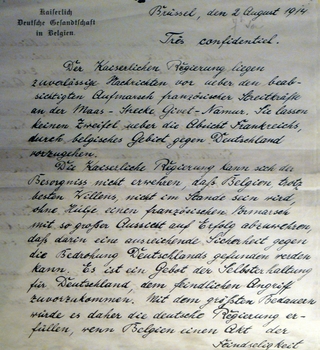 Kaiserlich
Deutsche Gesandtschaft
in Belgien
Brüssel, den 2 August 1914
Très confidentiel.
Der Kaiserlichen Regierung liegen
zuverlässige Nachrichten vor ueber den beab-
sichtigten Aufmarsch französischer Streitkräfte
an der Maas-Strecke Givet-Namur. Sie lassen
keinen Zweifel ueber die Absicht Frankreichs,
durch belgisches Gebiet gegen Deutschland
vorzugehen.
Die Kaiserliche Regierung kann sich der
Besorgniss nicht erwehren, daß Belgien trotz
besten Willens, nicht im Stande sein wird
ohne Hülfe einen französischen Vormarsch
mit so großer Aussicht auf Erfolg abzuwehren,
daß darin eine ausreichende Sicherheit gegen
die Bedrohung Deutschlands gefunden werden
kann. Es ist ein Gebot der Selbsterhaltung
für Deutschland, dem feindlichen Angriff
zuvorzukommen. Mit dem größten Bedauern
würde es daher die deutsche Regierung er-
füllen, wenn Belgien einen Akt der
Feindseligkeit